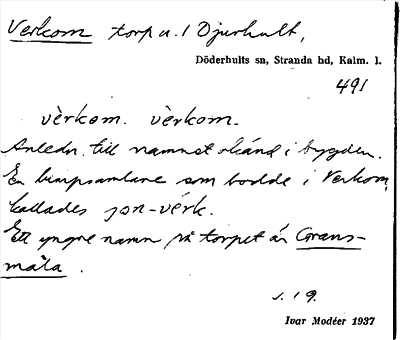 Verkom torp u. 1 Djurhult,
Döderhults sn, Stranda hd, Kalm. l.
491
vèrkom. vèrkom.
Anledn. till namnet okänd i bygden.
En lumpsamlare som bodde i Verkom,
kallades jon-vérk.
Ett yngre namn på torpet är Grans-
måla.
s. 19.
Ivar Modéer 1937